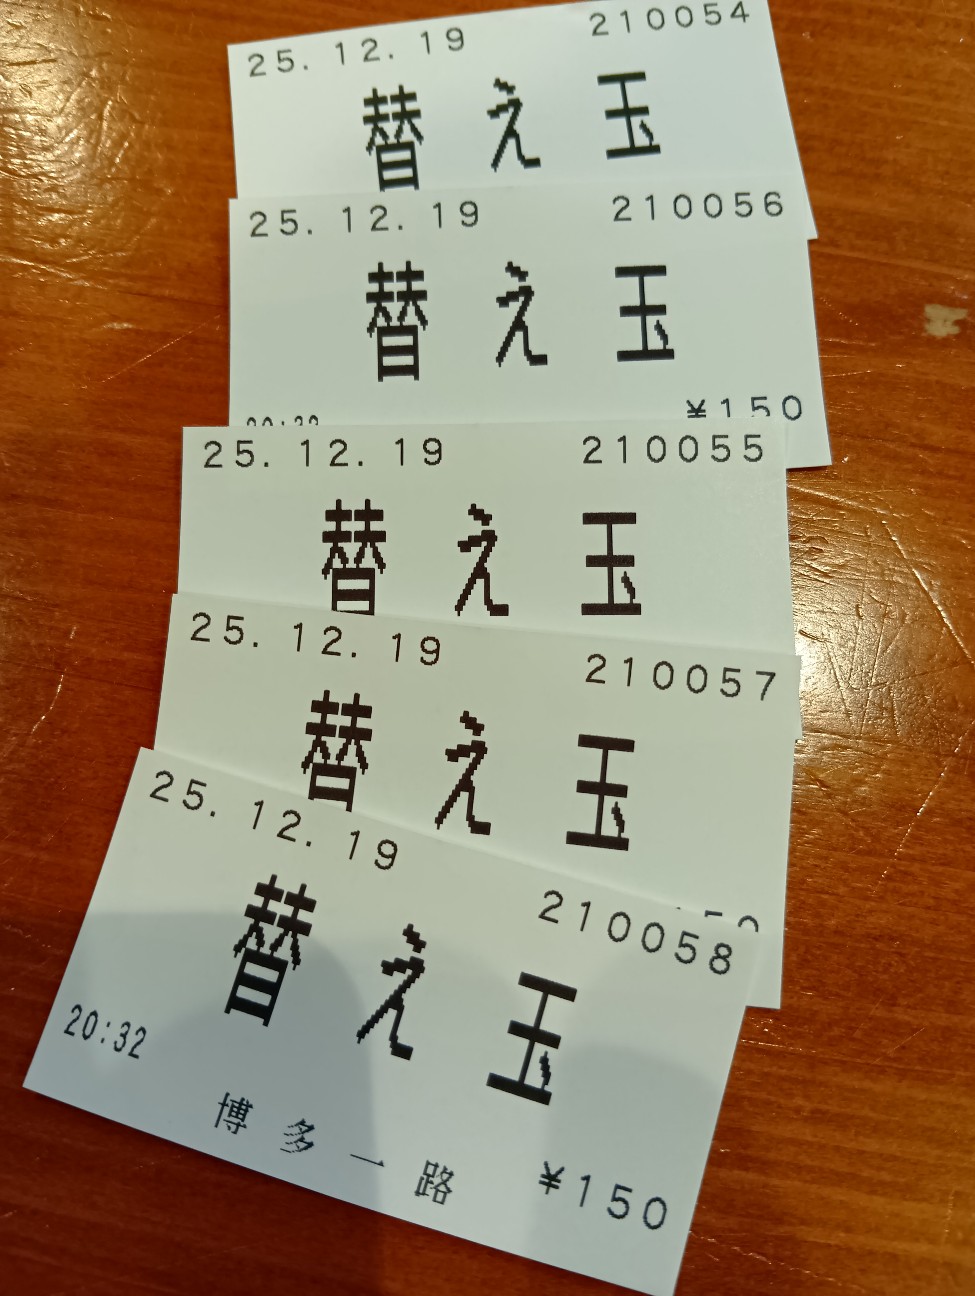 25. 12. 19 210054
替え玉
25. 12. 19 210056
替え玉
¥150
25. 12. 19 210055
替え玉
25. 12. 19 210057
替え玉
25. 12. 19 210058
替え玉
20:32
博多一路 ¥150